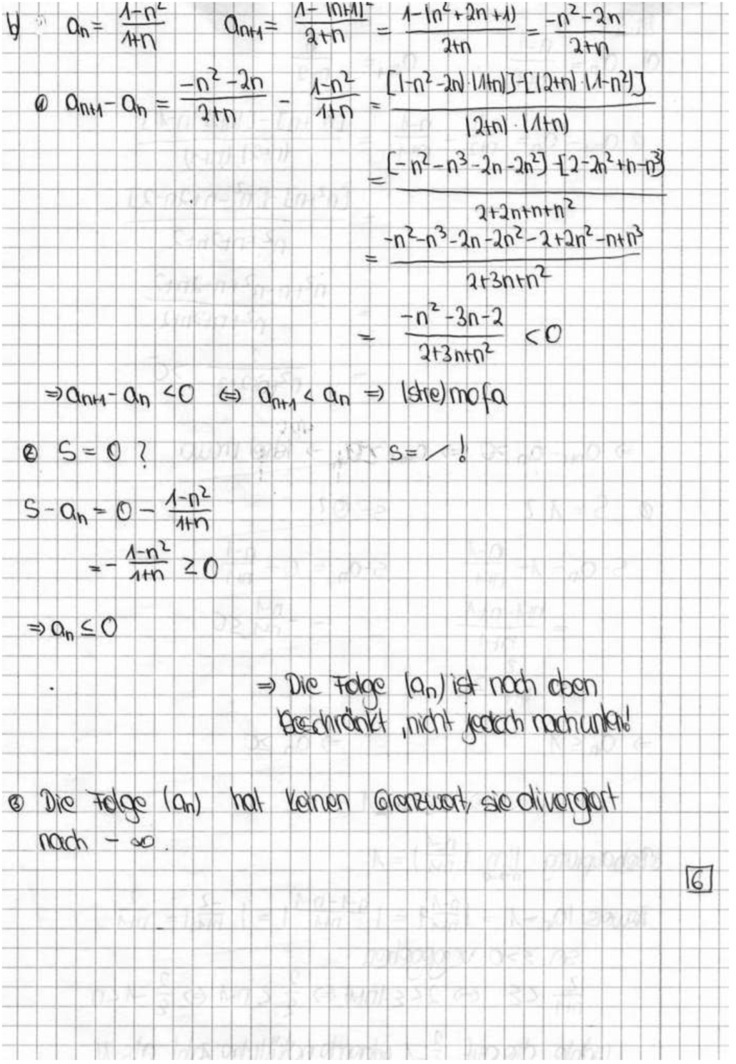 b) aₙ = (1-n²)/(1+n)   aₙ₊₁ = (1-(n+1)²)/(2+n) = (1-(n²+2n+1))/(2+n) = (-n²-2n)/(2+n)
① aₙ₊₁-aₙ = (-n²-2n)/(2+n) - (1-n²)/(1+n) = ([(-n²-2n)·(1+n)]-[(2+n)·(1-n²)])/((2+n)·(1+n))
= ([-n²-n³-2n-2n²]-[2-2n²+n-n³])/(2+2n+n+n²)
= (-n²-n³-2n-2n²-2+2n²-n+n³)/(2+3n+n²)
= (-n²-3n-2)/(2+3n+n²) <0
⇒ aₙ₊₁-aₙ <0 ⇔ aₙ₊₁ < aₙ ⇒ (stre) mofa
② S = 0 ?   s = / !
S-aₙ = 0 - (1-n²)/(1+n)
= - (1-n²)/(1+n) ≥ 0
⇒ aₙ ≤ 0
⇒ Die Folge (aₙ) ist nach oben
beschränkt, nicht jedoch nach unten!
③ Die Folge (aₙ) hat keinen Grenzwert, sie divergiert
nach -∞.
6